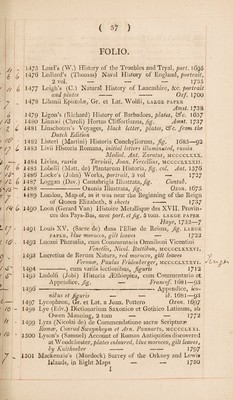 ( 57 )
FOLIO.
1475 Laud's (W.) History of the Troubles and Tryal, port. 1695
1476 Lediard's (Thomas) Naval History of England, portrait,
2 vol. — — — 1735
1477 Leigh's (C.) Natural History of Lancashire, &c. portrait
and plates — — Oxf. 1700
1478 Libanii Epistolæ, Gr. et Lat. Wolfii, LARGE PAPER
Amst. 1738
1479 Ligon's (Richard) History of Barbadoes, plates, &c. 1657
1480 Linnæi (Caroli) Hortus Cliffortianus, fig. Amst. 1737
1481 Linschoten's Voyages, black letter, plates, &c. from the
Dutch Edition
1482 Listeri (Martini) Historia Conchyliorum, fig. 1685—92
1483 Livii Historia Romana, initial letters illuminated, russia
Mediol. Ant. Zarotus, MCCCCLXXX.
1484 Livius, russia Tarvisii, Joan. Vercellius, MCCCCLXXXII.
1485 Lobelii (Matt. de) Plantarum Historia, fig. col. Ant. 1576
1486 Locke's (John) Works, portrait, 3 vol 1727
1487 Loggan (Dav.) Cantabrigia Illustrata, fig. Cantab.
1488 ——— Oxonia Illustrata, fig. Oxon. 1675
1489 London, Map of, as it was near the Beginning of the Reign
of Queen Elizabeth, 8 sheets — 1737
1490 Loon (Gerard Van) Histoire Metallique des XVII. Provin-
ces des Pays-Bas, avec port. et fig. 5 tom. LARGE PAPER
Haye, 1732—7
1491 Louis XV. (Sacre de) dans l'Elise de Reims, fig. LARGE
PAPER, blue morocco, gilt leaves 1722
1492 Lucani Pharsalia, cum Commentariis Omniboni Vicentini
Venetiis, Nicol. Battibos, MCCCCLXXXVI.
1493 Lucretius de Rerum Natura, red morocco, gilt leaves
Veronæ, Paulus Fridenberger, MCCCCLXXXVI.
1494 ———, cum variis lectionibus, figuris 1712
1495 Ludolfi (Jobi) Historia Æthiopica, cum Commentario et
Appendice, fig. — Francof. 1681—93
1496 ——————————————— Appendice, ico-
nibus et figuris — id. 1681—93
1497 Lycophron, Gr. et Lat. a Joan. Pottero Oxon. 1697
1498 Lye (Edv.) Dictionarium Saxonico et Gothico Latinum, ab
Owen Manning, 2 tom — 1772
1499 Lyra (Nicolai de) de Commendatione sacræ Scripturæ
Romæ, Conrad Sweynheym et Arn. Pannartz, MCCCCLXXI.
1500 Lyson's (Samuel) Account of Roman Antiquities discovered
at Woodchester, plates coloured, blue morocco, gilt leaves,
by Kalthoeber — — 1797
1501 Mackenzie's (Murdock) Survey of the Orkney and Lewis
Islands, in Eight Maps — 1750
I